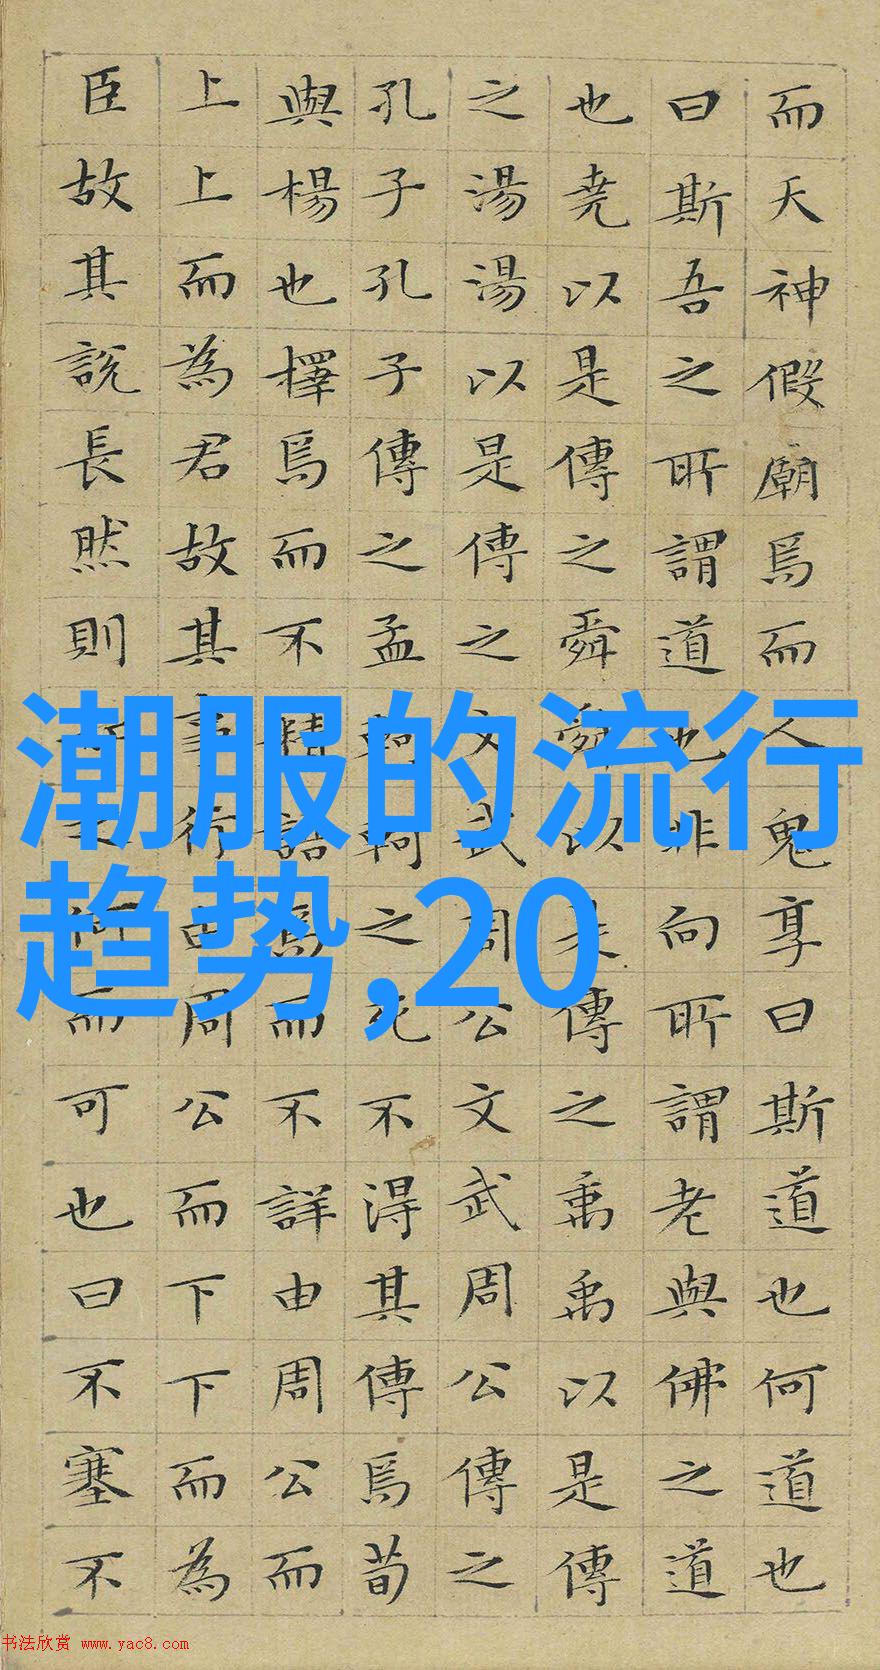 而天神假廟焉而人鬼享曰斯道也何道也
曰斯吾之所謂道也非向所謂老與佛之道
也堯以是傳之舜舜以是傳之禹禹以是傳
之湯湯以是傳之文武周公文武周公傳之
孔子孔子傳之孟軻軻之死不得其傳焉荀
與楊也擇焉而不精語焉而不詳由周公而
上上而為君故其事行由周公而下下而為
臣故其說長然則如之何而可也曰不塞不
潮服的流行
趋势,20
书法欣赏 www.yac8.com